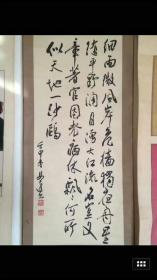 細草微風岸危檣獨夜舟星
垂平野闊月湧大江流名豈文
章著官因老病休飄飄何所
似天地一沙鷗